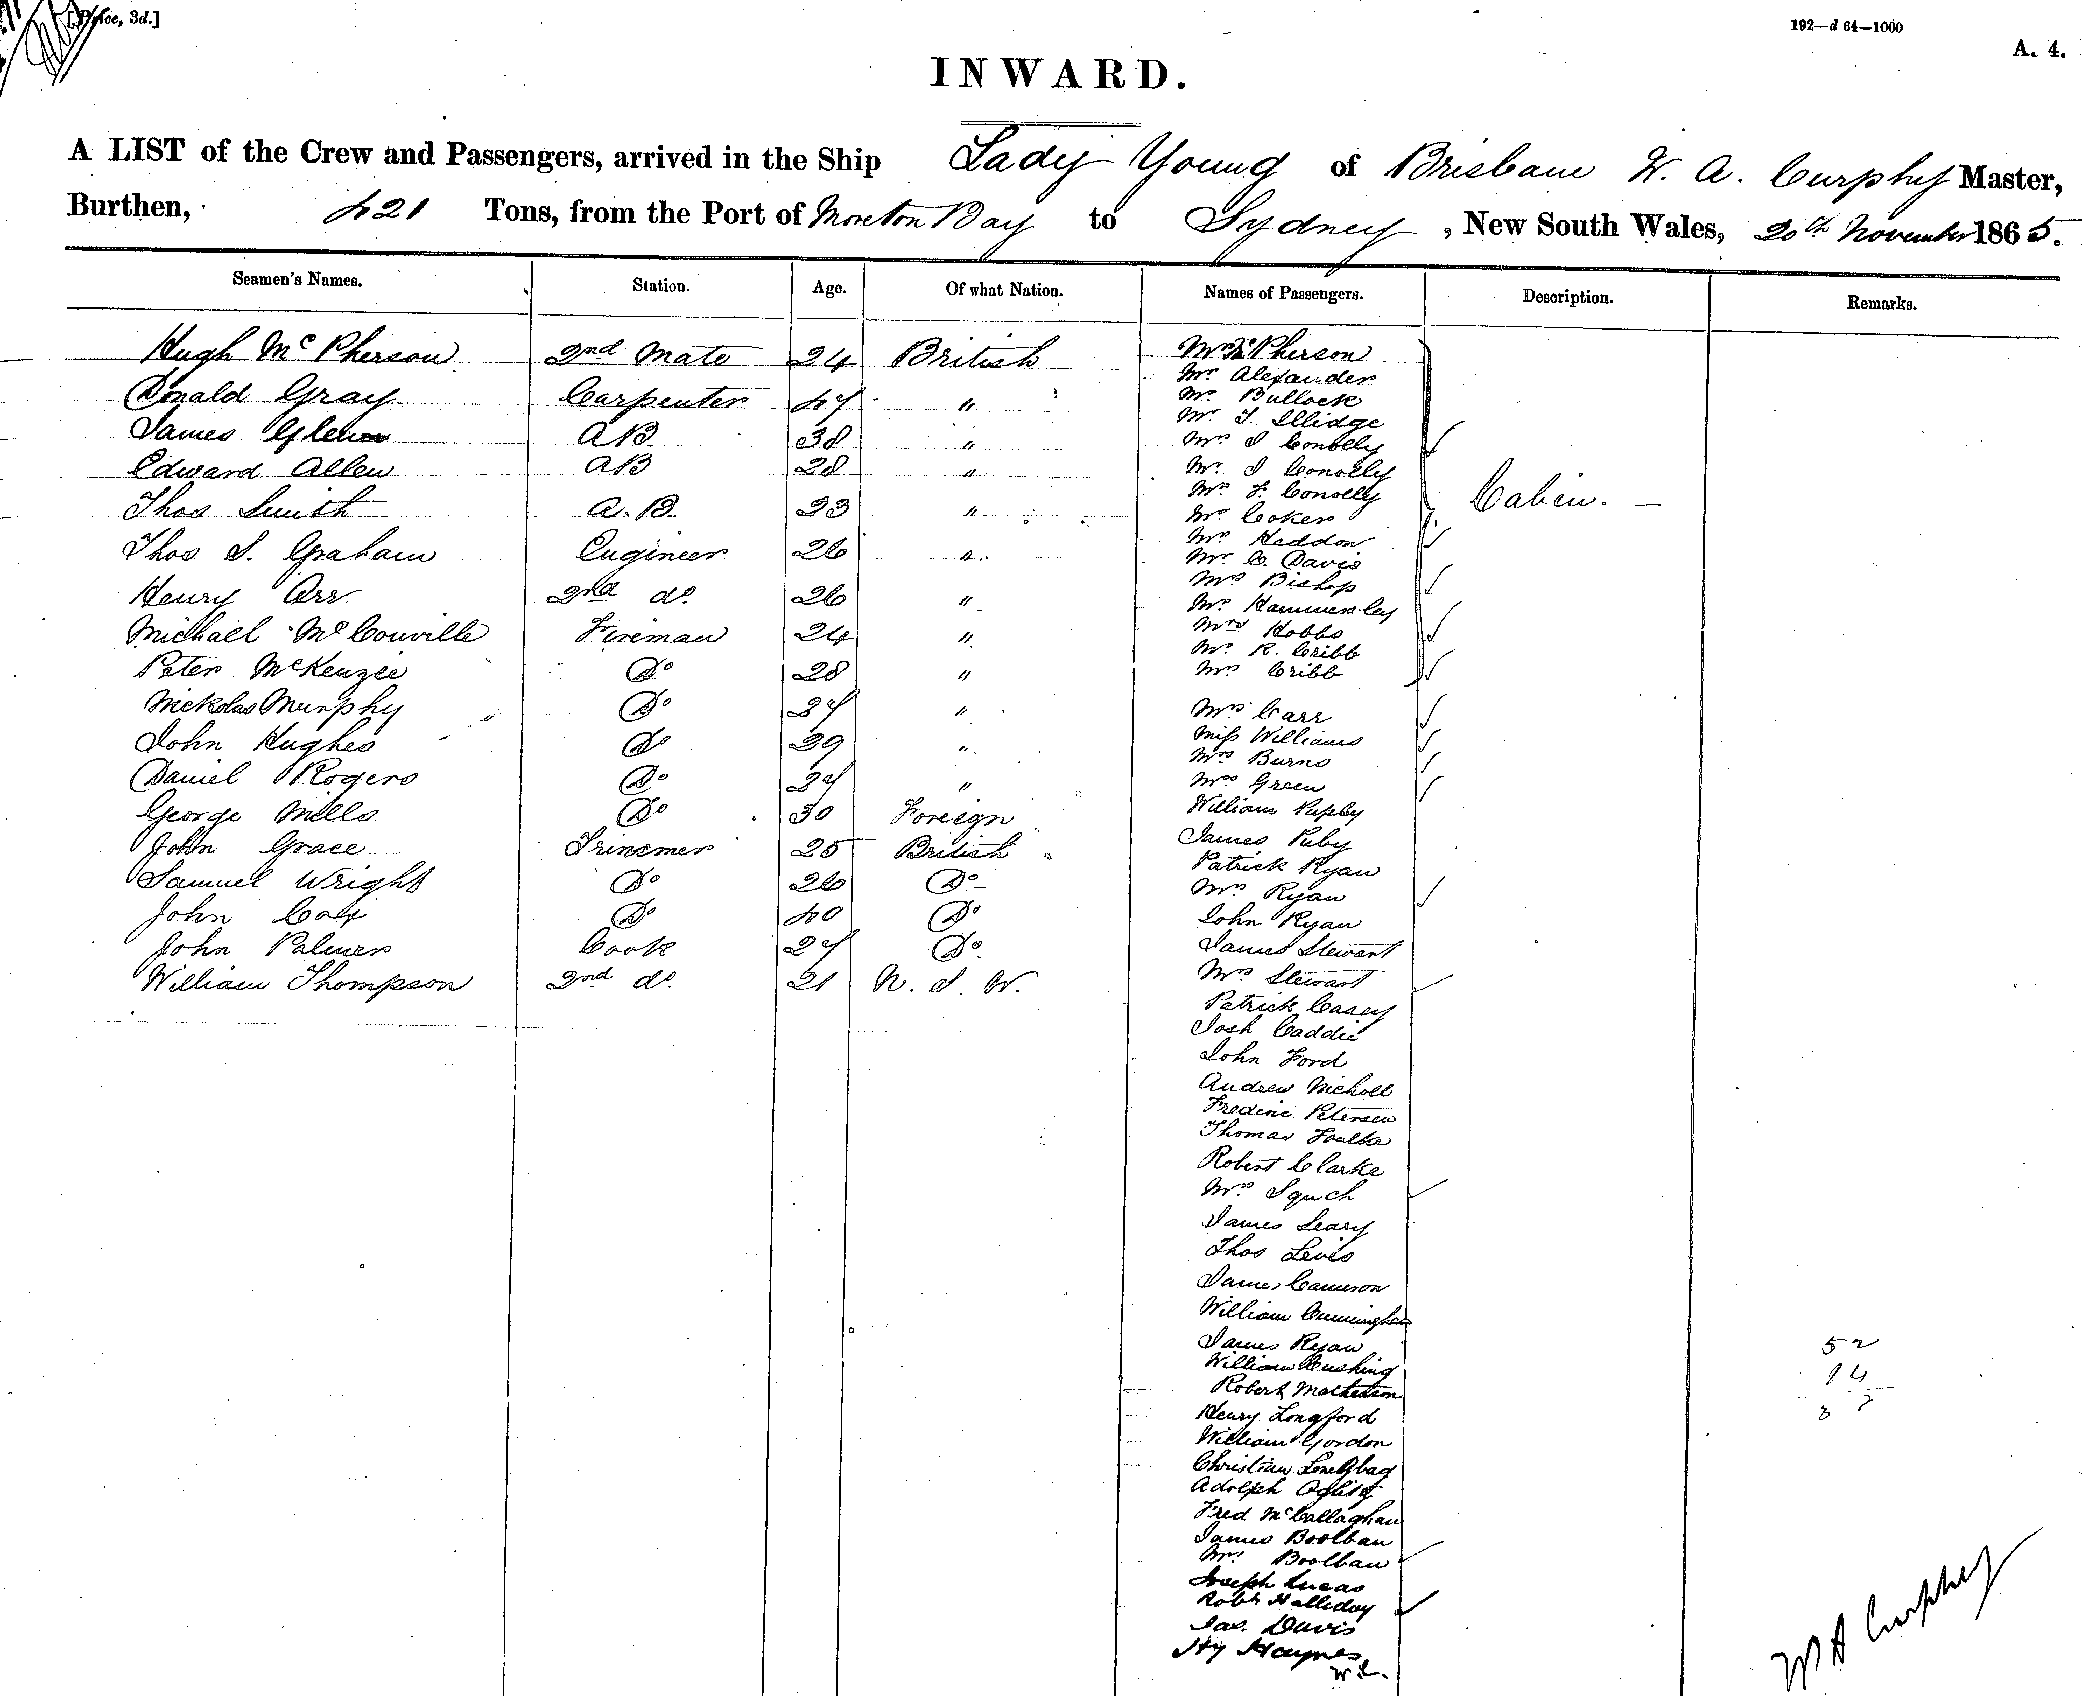 [Price, 3d.]
192—d 64—1000
A. 4.
INWARD.
A LIST of the Crew and Passengers, arrived in the Ship Lady Young of Brisbane W. A. Curphey Master,
Burthen, 421 Tons, from the Port of Moreton Bay to Sydney, New South Wales, 20th November 1865.
Seamen's Names. Station. Age. Of what Nation. Names of Passengers. Description. Remarks.
Hugh McPherson 2nd Mate 24 British
Donald Gray Carpenter 47 "
James AB 38 "
Edward Allen AB 28 "
Thos Smith A.B. 23 "
Thos S. Graham Engineer 26 "
Henry Orr 2nd do. 26 "
Michael McConville Fireman 24 "
Peter McKenzie Do 28 "
Nickolas Murphy Do 37 "
John Hughes Do 39 "
Daniel Rogers Do "
George Mills Do 30 Foreign
John Grace Trimmer 25 British
Samuel Wright Do 26 Do
John Cox Do 40 Do
John Palmer Cook 27 Do
William Thompson 2nd do. 21 N. S. W.
McPherson
Mr Alexander
Mr Bullock
Mr J. Illidge
Mrs J Conolly
Mr. J Conolly
Mr. F. Conolly
Mr Coker
Mrs Haddon
Mr C. Davis
Mrs Bishop
Mr. Hammersley
Mrs Hobbs
Mr. R. Cribb
Mrs Cribb
Cabin.
Mrs Carr
Miss Williams
Mrs Burns
Mrs Green
William
James Ruby
Patrick Ryan
Mrs Ryan
John Ryan
James Stewart
Mrs Stewart
Patrick Casey
Josh Caddie
John Ford
Andrew Nicholl
Frederic Petersen
Thomas
Robert Clarke
Mrs
James Leary
Thos Lewis
James Cameron
William Cunningham
James Ryan
William Cushing
Robert Matheson
Henry Longford
William Gordon
Christian
Adolph
Fred McCallaghan
James Boolban
Mrs Boolban
Joseph Lucas
Robt Halliday
Jas. Davis
Hy Haynes
52
14
W A Curphey